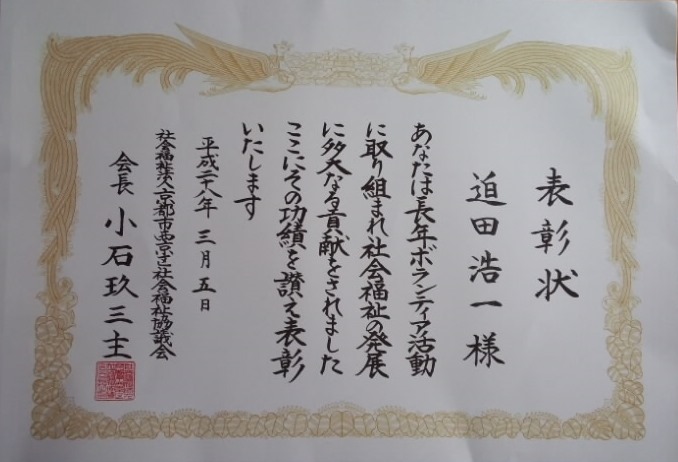 表彰状
迫田浩一様
あなたは長年ボランティア活動
に取り組まれ社会福祉の発展
に多大なる貢献をされました
ここにその功績を讃え表彰
いたします
平成二十八年三月五日
社会福祉法人京都市西京区社会福祉協議会
会長小石玖三主